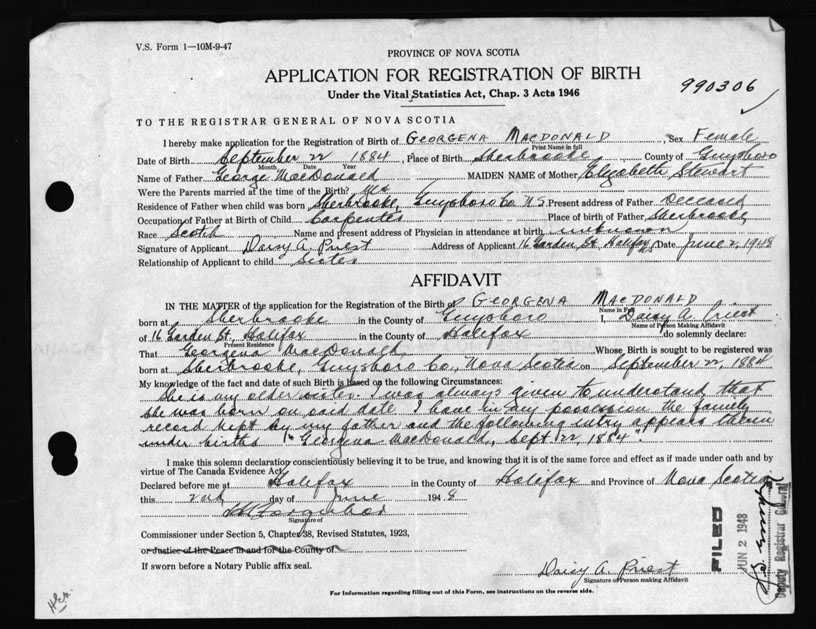 V.S. Form 1—10M-9-47
PROVINCE OF NOVA SCOTIA
APPLICATION FOR REGISTRATION OF BIRTH
Under the Vital Statistics Act, Chap. 3 Acts 1946
990306
TO THE REGISTRAR GENERAL OF NOVA SCOTIA
I hereby make application for the Registration of Birth of GEORGENA MACDONALD, Sex Female
Print Name in full
Date of Birth September 22 1884, Place of Birth Sherbrooke County of Guysboro
Month Date Year
Name of Father George MacDonald MAIDEN NAME of Mother Elizabeth Stewart
Were the Parents married at the time of the Birth? Yes
Residence of Father when child was born Sherbrooke, Guysboro Co. N.S. Present address of Father Deceased
Occupation of Father at Birth of Child Carpenter Place of birth of Father Sherbrooke
Race Scotch Name and present address of Physician in attendance at birth unknown
Signature of Applicant Daisy A. Priest Address of Applicant 16 Garden St. Halifax NS Date June 2, 1948
Relationship of Applicant to child Sister
AFFIDAVIT
IN THE MATTER of the application for the Registration of the Birth of GEORGENA MACDONALD
Name in Full
born at Sherbrooke in the County of Guysboro I, Daisy A Priest
Name of Person Making Affidavit
of 16 Garden St. Halifax in the County of Halifax do solemnly declare:
Present Residence
That Georgena MacDonald, Whose Birth is sought to be registered was
born at Sherbrooke, Guysboro Co., Nova Scotia on September 22, 1884
My knowledge of the fact and date of such Birth is based on the following Circumstances:
She is my older sister. I was always given to understand that
she was born on said date. I have in my possession the family
record kept by my father and the following entry appears therein
under births "Georgena MacDonald, Sept. 22, 1884".
I make this solemn declaration conscientiously believing it to be true, and knowing that it is of the same force and effect as if made under oath and by
virtue of The Canada Evidence Act.
Declared before me at Halifax in the County of Halifax and Province of Nova Scotia
this 2nd day of June 1948
Signature of
Commissioner under Section 5, Chapter 38, Revised Statutes, 1923,
or Justice of the Peace in and for the County of
If sworn before a Notary Public affix seal.
Daisy A. Priest
Signature of Person making Affidavit
For Information regarding filling out of this Form, see instructions on the reverse side.
FILED
JUN 2 1948
Deputy Registrar General